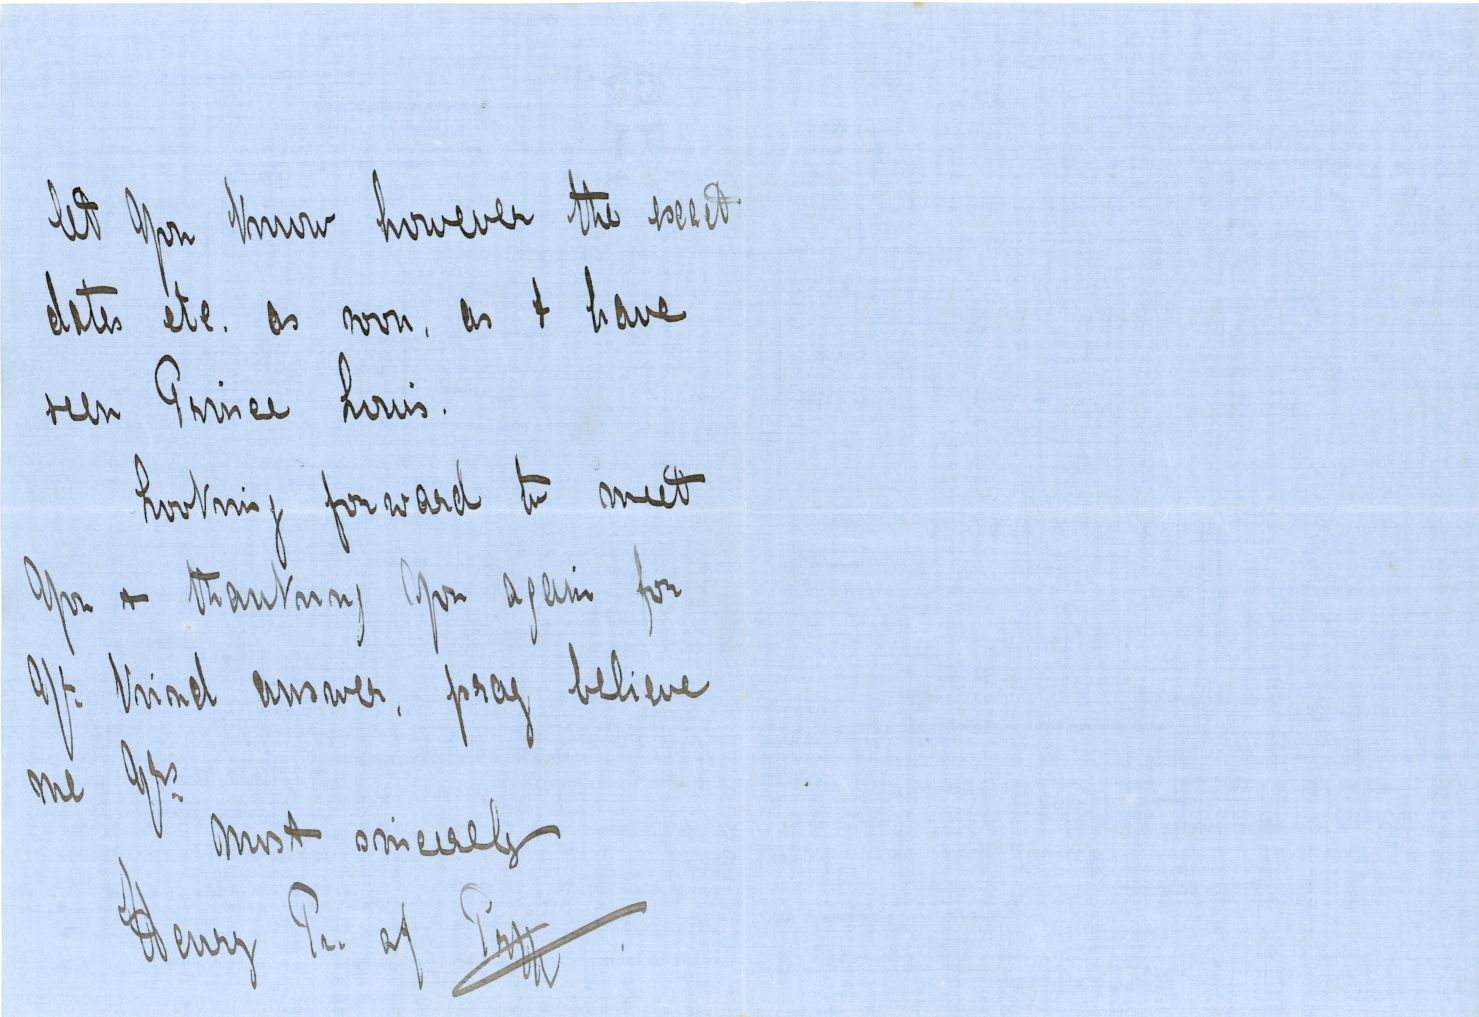 let you know however the exact
dates etc. as soon, as I have
seen Prince Louis.
Looking forward to meet
you + thanking you again for
yr. kind answer, pray believe
me yrs.
most sincerely
Henry Pr. of